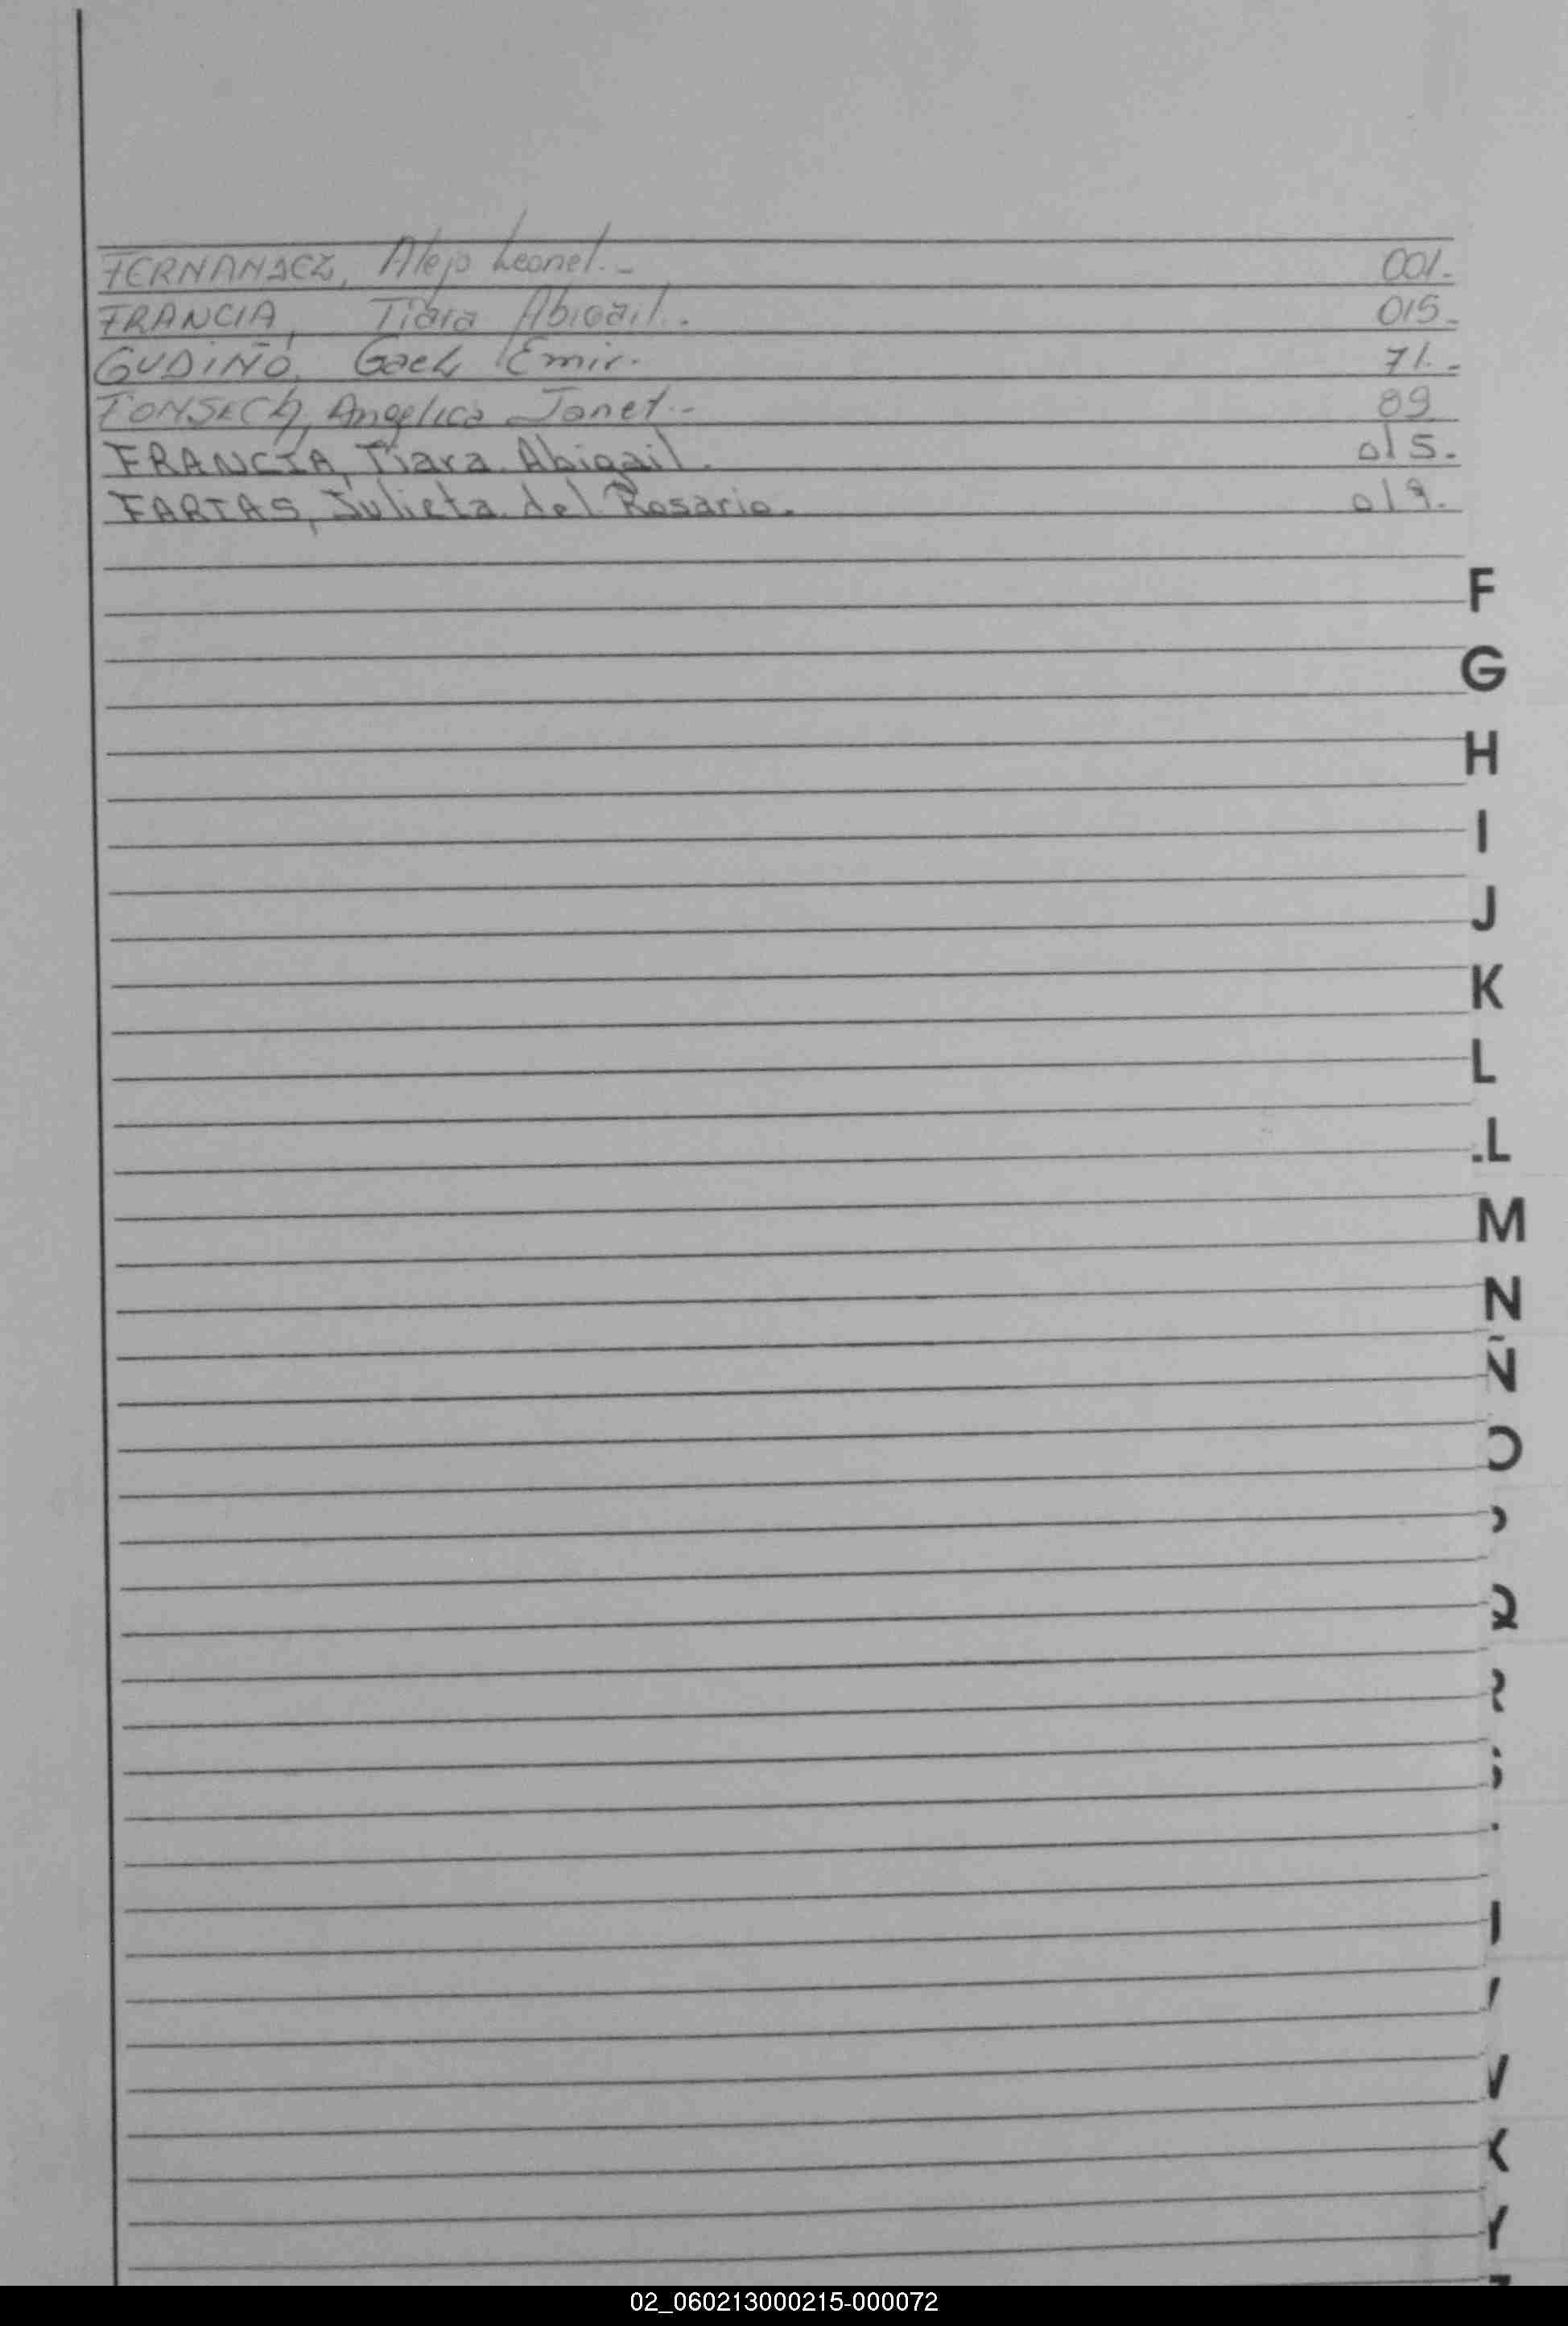 FERNANDEZ, Alejo Leonel.- 001.-
FRANCIA, Tiara Abigail.- 015.-
GUDIÑO, Gael Emir.- 71.-
FONSECA, Angelica Janet.- 89
FRANCIA, Tiara Abigail. 015.
FARIAS, Julieta del Rosario. 019.
F
G
H
I
J
K
L
LL
M
N
Ñ
O
P
Q
R
S
V
X
Y
02_060213000215-000072